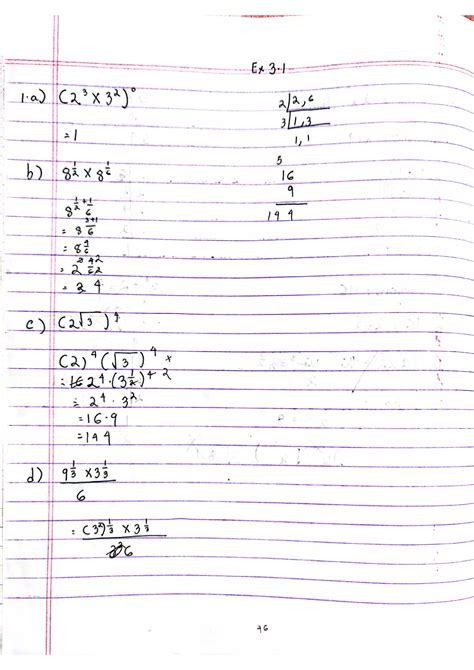 Ex 3.1
1.a) (2³ × 3²)⁰
= 1
2 | 2, 6
3 | 1, 3
1, 1
b) 8^(1/2) × 8^(1/6)
8^(1/2 + 1/6)
= 8^((3+1)/6)
= 8^(4/6)
= 4
5
16
9
144
c) (2√3)⁴
(2)⁴ (√3)⁴
2⁴ · (3^(1/2))⁴
= 2⁴ · 3²
= 16 · 9
= 144
d) (9^(1/3) × 3^(1/3)) / 6
= ((3²)^(1/3) × 3^(1/3)) / 6
46